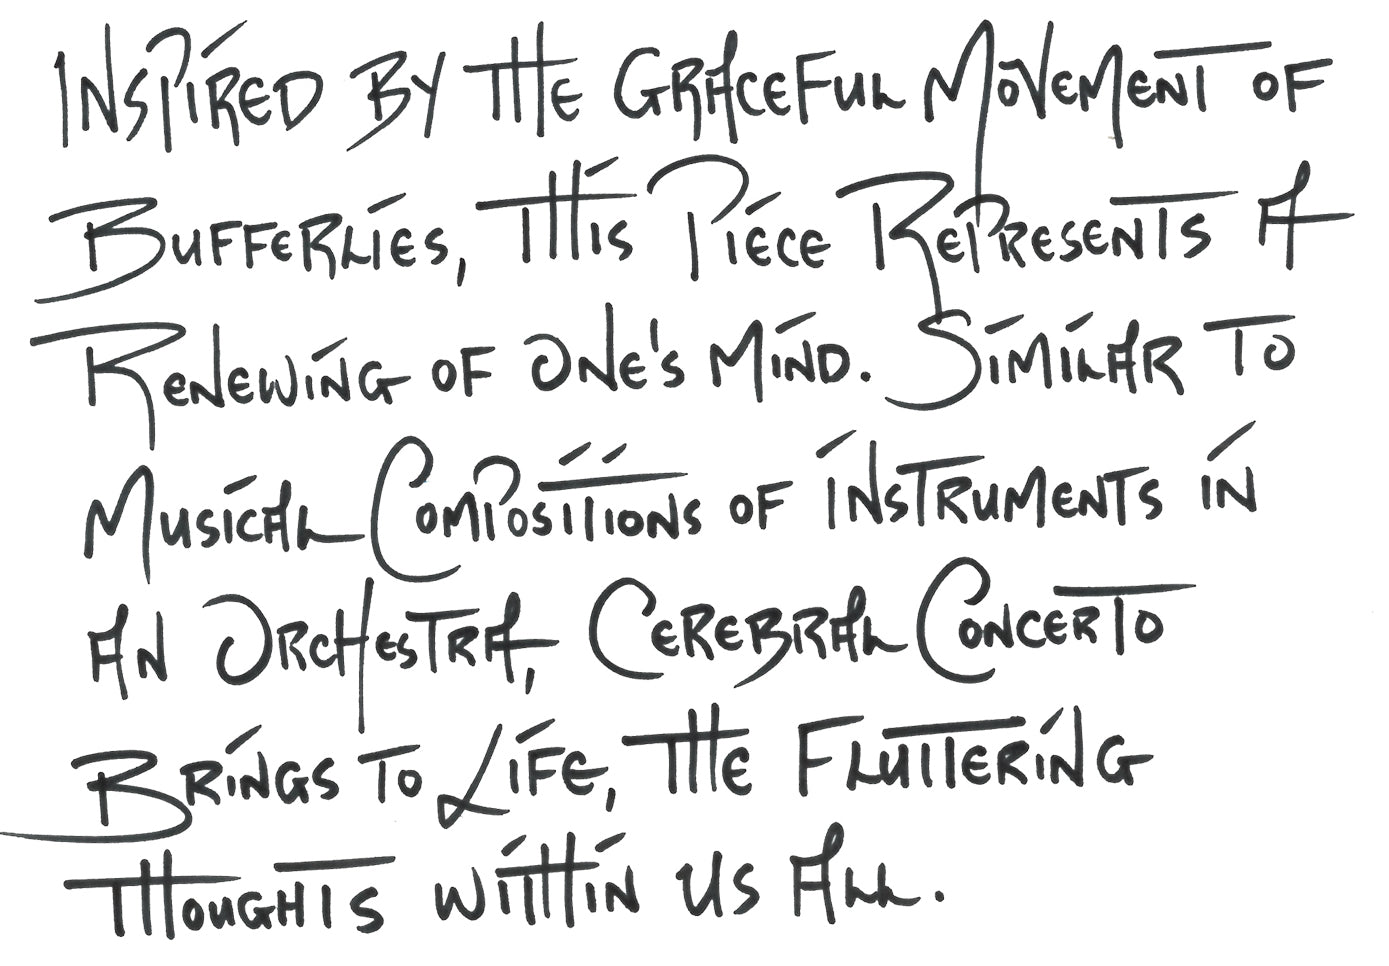 Inspired by the Graceful Movement of
Bufferlies, this Piece Represents a
Renewing of One's Mind. Similar to
Musical Compositions of instruments in
an Orchestra, Cerebral Concerto
Brings to Life, the Fluttering
thoughts within us All.